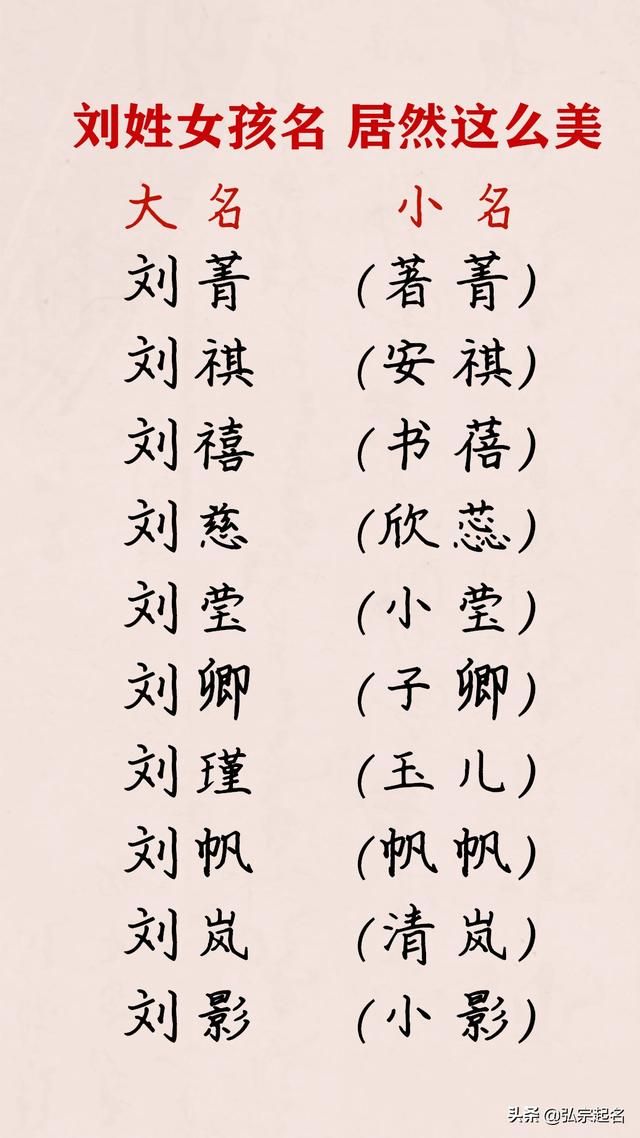 刘姓女孩名 居然这么美
大名 小名
刘菁 (著菁)
刘祺 (安祺)
刘禧 (书蓓)
刘慈 (欣蕊)
刘莹 (小莹)
刘卿 (子卿)
刘瑾 (玉儿)
刘帆 (帆帆)
刘岚 (清岚)
刘影 (小影)
头条 @弘宗起名